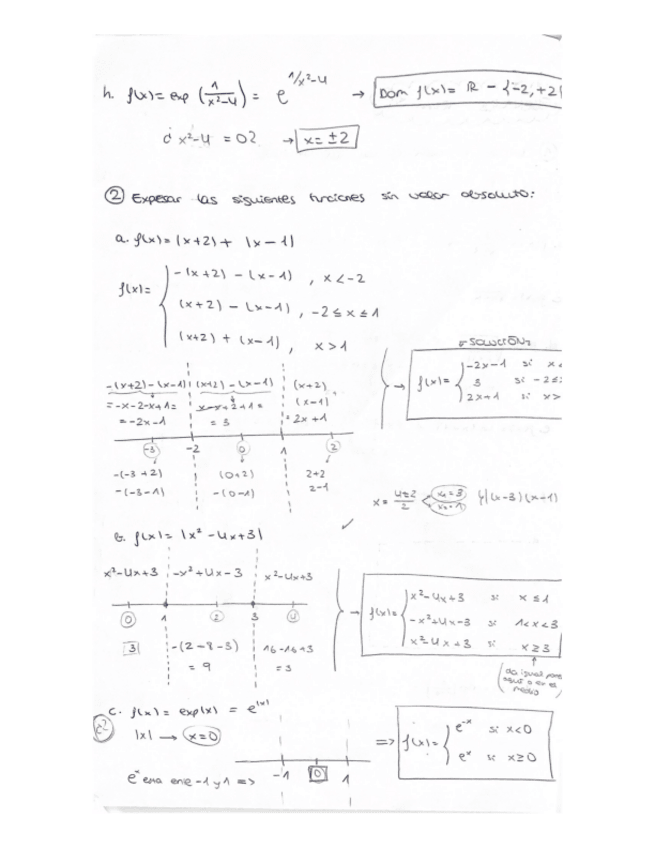 h. f(x)= exp (1/x²-4) = e^1/x²-4 → Dom f(x)= ℝ - {-2,+2}
¿ x²-4 = 0? → x= ±2
② Expesar las siguientes funciones sin valor absoluto:
a. f(x)= |x+2| + |x-1|
f(x)= { -(x+2) - (x-1) , x<-2
(x+2) - (x-1) , -2≤x≤1
(x+2) + (x-1) , x>1
SOLUCIÓN
→ f(x)= { -2x-1 si x<
3 si -2≤
2x+1 si x>
-(x+2)-(x-1) (x+2)-(x-1) (x+2)
=-x-2-x+1= x-x+2+1= (x-1)
=-2x-1 = 3 = 2x+1
-3 -2 0 1 2
-(-3+2) (0+2) 2+2
-(-3-1) -(0-1) 2-1
x= 4±2/2 x₁=3 x₂=1 (x-3)(x-1)
b. f(x)= |x²-4x+3|
x²-4x+3 -x²+4x-3 x²-4x+3
0 1 2 3 4
3 -(2-8-3) 16-16+3
= 9 = 3
→ f(x)= { x²-4x+3 si x≤1
-x²+4x-3 si 1<x<3
x²-4x+3 si x≥3
da igual poner
aquí o en el
medio
c. f(x)= exp|x| = e^|x|
|x| → x=0
-1 0 1
=> f(x)= { e^-x si x<0
e^x si x≥0